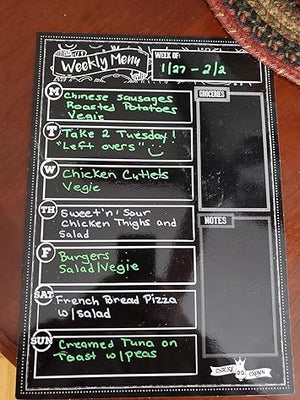 Weekly Menu
WEEK OF:
1/27 - 2/2
GROCERIES
M
Chinese Sausages
Roasted Potatoes
Vegie
T
Take 2 Tuesday!
"Left overs"
W
Chicken Cutlets
Vegie
TH
Sweet 'n' Sour
Chicken Thighs and
Salad
NOTES
F
Burgers
Salad/Vegie
SAT
French Bread Pizza
w/salad
SUN
Creamed Tuna on
Toast w/peas
CHALKY
CROWN